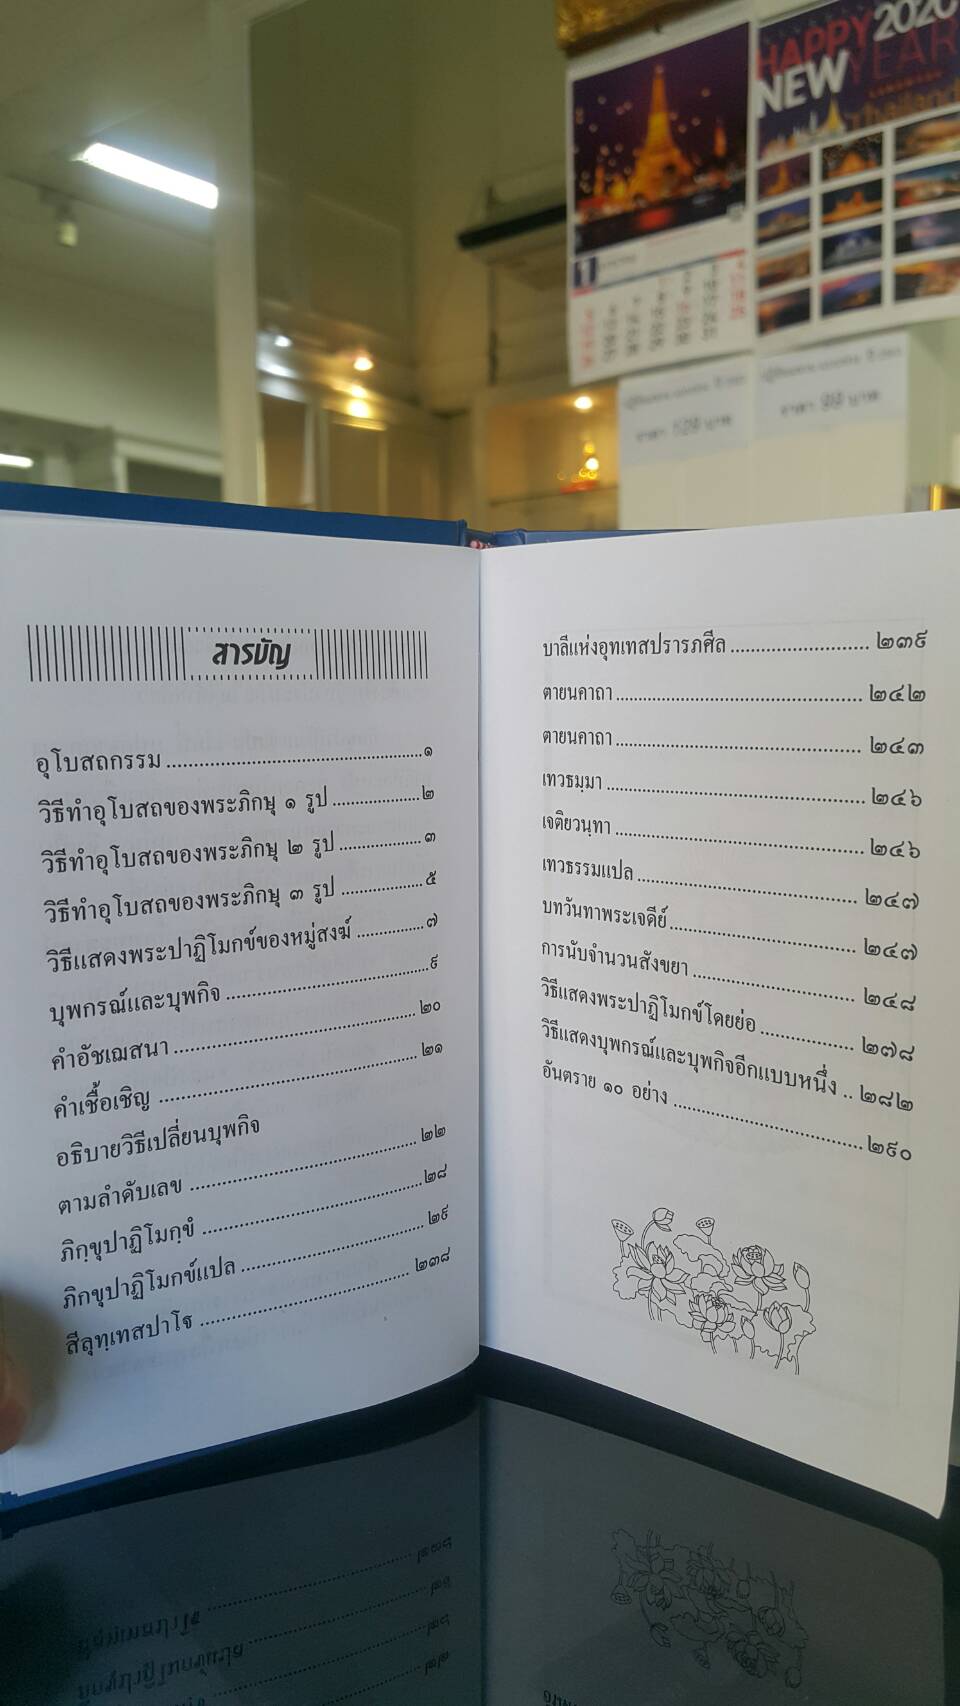 HAPPY 2020
NEW YEAR
Thailand
1
ราคา 129 บาท
ราคา 99 บาท
สารบัญ
อุโบสถกรรม ................................................ ๑
วิธีทำอุโบสถของพระภิกษุ ๑ รูป .................... ๒
วิธีทำอุโบสถของพระภิกษุ ๒ รูป ................... ๓
วิธีทำอุโบสถของพระภิกษุ ๓ รูป ................... ๕
วิธีแสดงพระปาฏิโมกข์ของหมู่สงฆ์ ................ ๗
บุพกรณ์และบุพกิจ ........................................ ๙
คำอัชเฌสนา ................................................ ๒๐
คำเชื้อเชิญ .................................................. ๒๑
อธิบายวิธีเปลี่ยนบุพกิจ
ตามลำดับเลข ............................................. ๒๒
ภิกฺขุปาฏิโมกฺขํ ........................................... ๒๘
ภิกขุปาฏิโมกข์แปล ..................................... ๒๙
สีลุทฺเทสปาโฐ ............................................. ๒๓๘
บาลีแห่งอุทเทสปรารภศีล ............................ ๒๓๙
ตายนคาถา .................................................. ๒๔๒
ตายนคาถา .................................................. ๒๔๓
เทวธมฺมา .................................................... ๒๔๖
เจติยวนฺทา .................................................. ๒๔๖
เทวธรรมแปล ............................................. ๒๔๗
บทวันทาพระเจดีย์ ....................................... ๒๔๗
การนับจำนวนสังขยา ................................... ๒๔๘
วิธีแสดงพระปาฏิโมกข์โดยย่อ ..................... ๒๗๘
วิธีแสดงบุพกรณ์และบุพกิจอีกแบบหนึ่ง .. ๒๘๒
อันตราย ๑๐ อย่าง ........................................ ๒๙๐